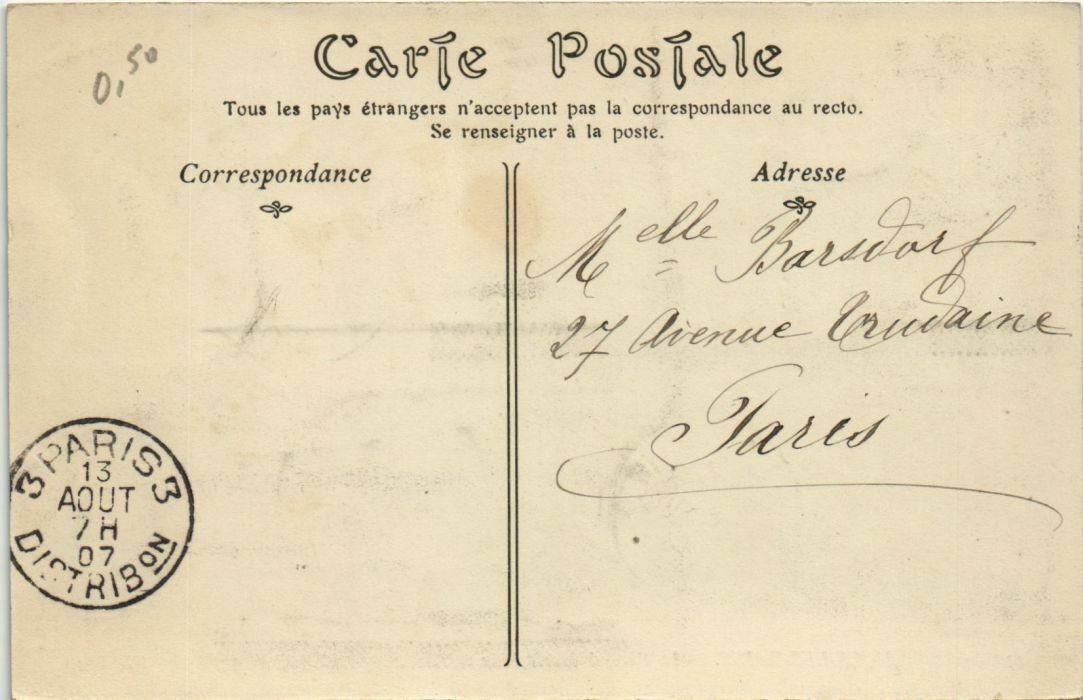 0,50
Carte Postale
Tous les pays étrangers n'acceptent pas la correspondance au recto.
Se renseigner à la poste.
Correspondance
Adresse
Melle Barsdorf
27 Avenue Trudaine
Paris
3 PARIS 3
13
AOUT
7H
07
DISTRIBON